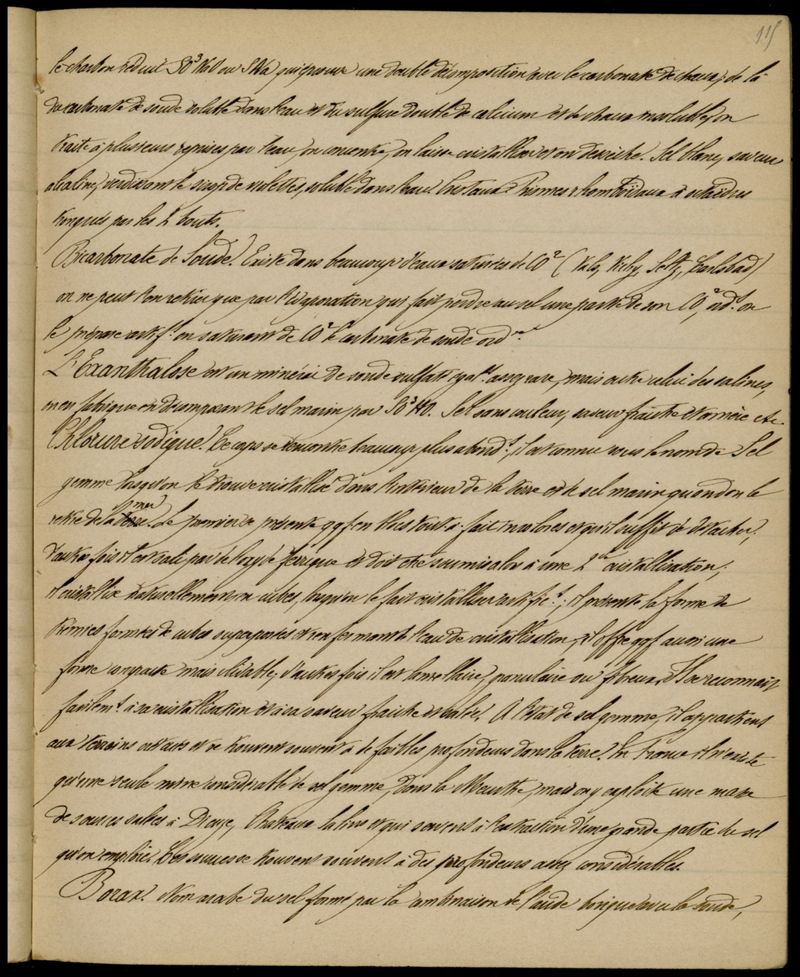 115
le charbon réduit SO³NaO ou SNa qui éprouve une double décomposition avec le carbonate de chaux; de là
du carbonate de soude soluble dans l'eau et du sulfure double de calcium et de chaux insoluble, on
traite à plusieurs reprises par l'eau, on concentre, on laisse cristalliser et on dessèche. Sel blanc, saveur
alcaline, verdissant le sirop de violettes, soluble dans l'eau. Cristaux: Prismes rhomboïdaux à octaèdres
tronqués par les 2 bouts.
Bicarbonate de Soude. Existe dans beaucoup d'eaux saturées de CO² (Vals, Vichy, Seltz, Carlsbad)
on ne peut l'en retirer que par l'évaporation qui fait perdre au sel une partie de son CO², ad. on
le prépare artif.t en saturant de CO² le carbonate de soude ord.re
L'Exanthalose est un minérai de soude sulfatée assez rare, mais outre celui des salines,
on en fabrique en décomposant le sel marin par SO³HO. Sel sans couleur, saveur fraîche et amère etc
Chlorure sodique. Ce corps se rencontre beaucoup plus abond.t; il est connu sous le nom de Sel
gemme lorsqu'on le trouve cristallisé dans l'intérieur de la terre et de sel marin quand on le
retire de la mer. Le premier se présente qqf en blocs tout à fait incolores et qu'il suffit de détacher.
d'autres fois il est sali par de l'oxyde ferrique et doit être soumis alors à une 2e cristallisation;
il cristallise naturellement en cubes, lorsqu'on le fait cristalliser artific.t; il présente la forme de
trémies formées de cubes superposés et renfermant de l'eau de cristallisation, il offre qqf aussi une
forme compacte mais clivable, d'autres fois il est lamellaire, granulaire ou fibreux. Il se reconnaît
facilem.t à sa cristallisation et à sa saveur fraîche et salée. A l'état de sel gemme, il appartient
aux terrains et se trouvent souvent à de faibles profondeurs dans la terre. En France il n'existe
qu'une seule mine considérable de sel gemme, dans la Meurthe, mais on y exploite une masse
de sources salées à Dieuze, Château Salins et qui servent à l'extraction d'une grande partie du sel
qu'on emploie. Ces sources se trouvent souvent à des profondeurs assez considérables.
Borax. Nom arabe du sel formé par la combinaison de l'acide borique avec la soude,